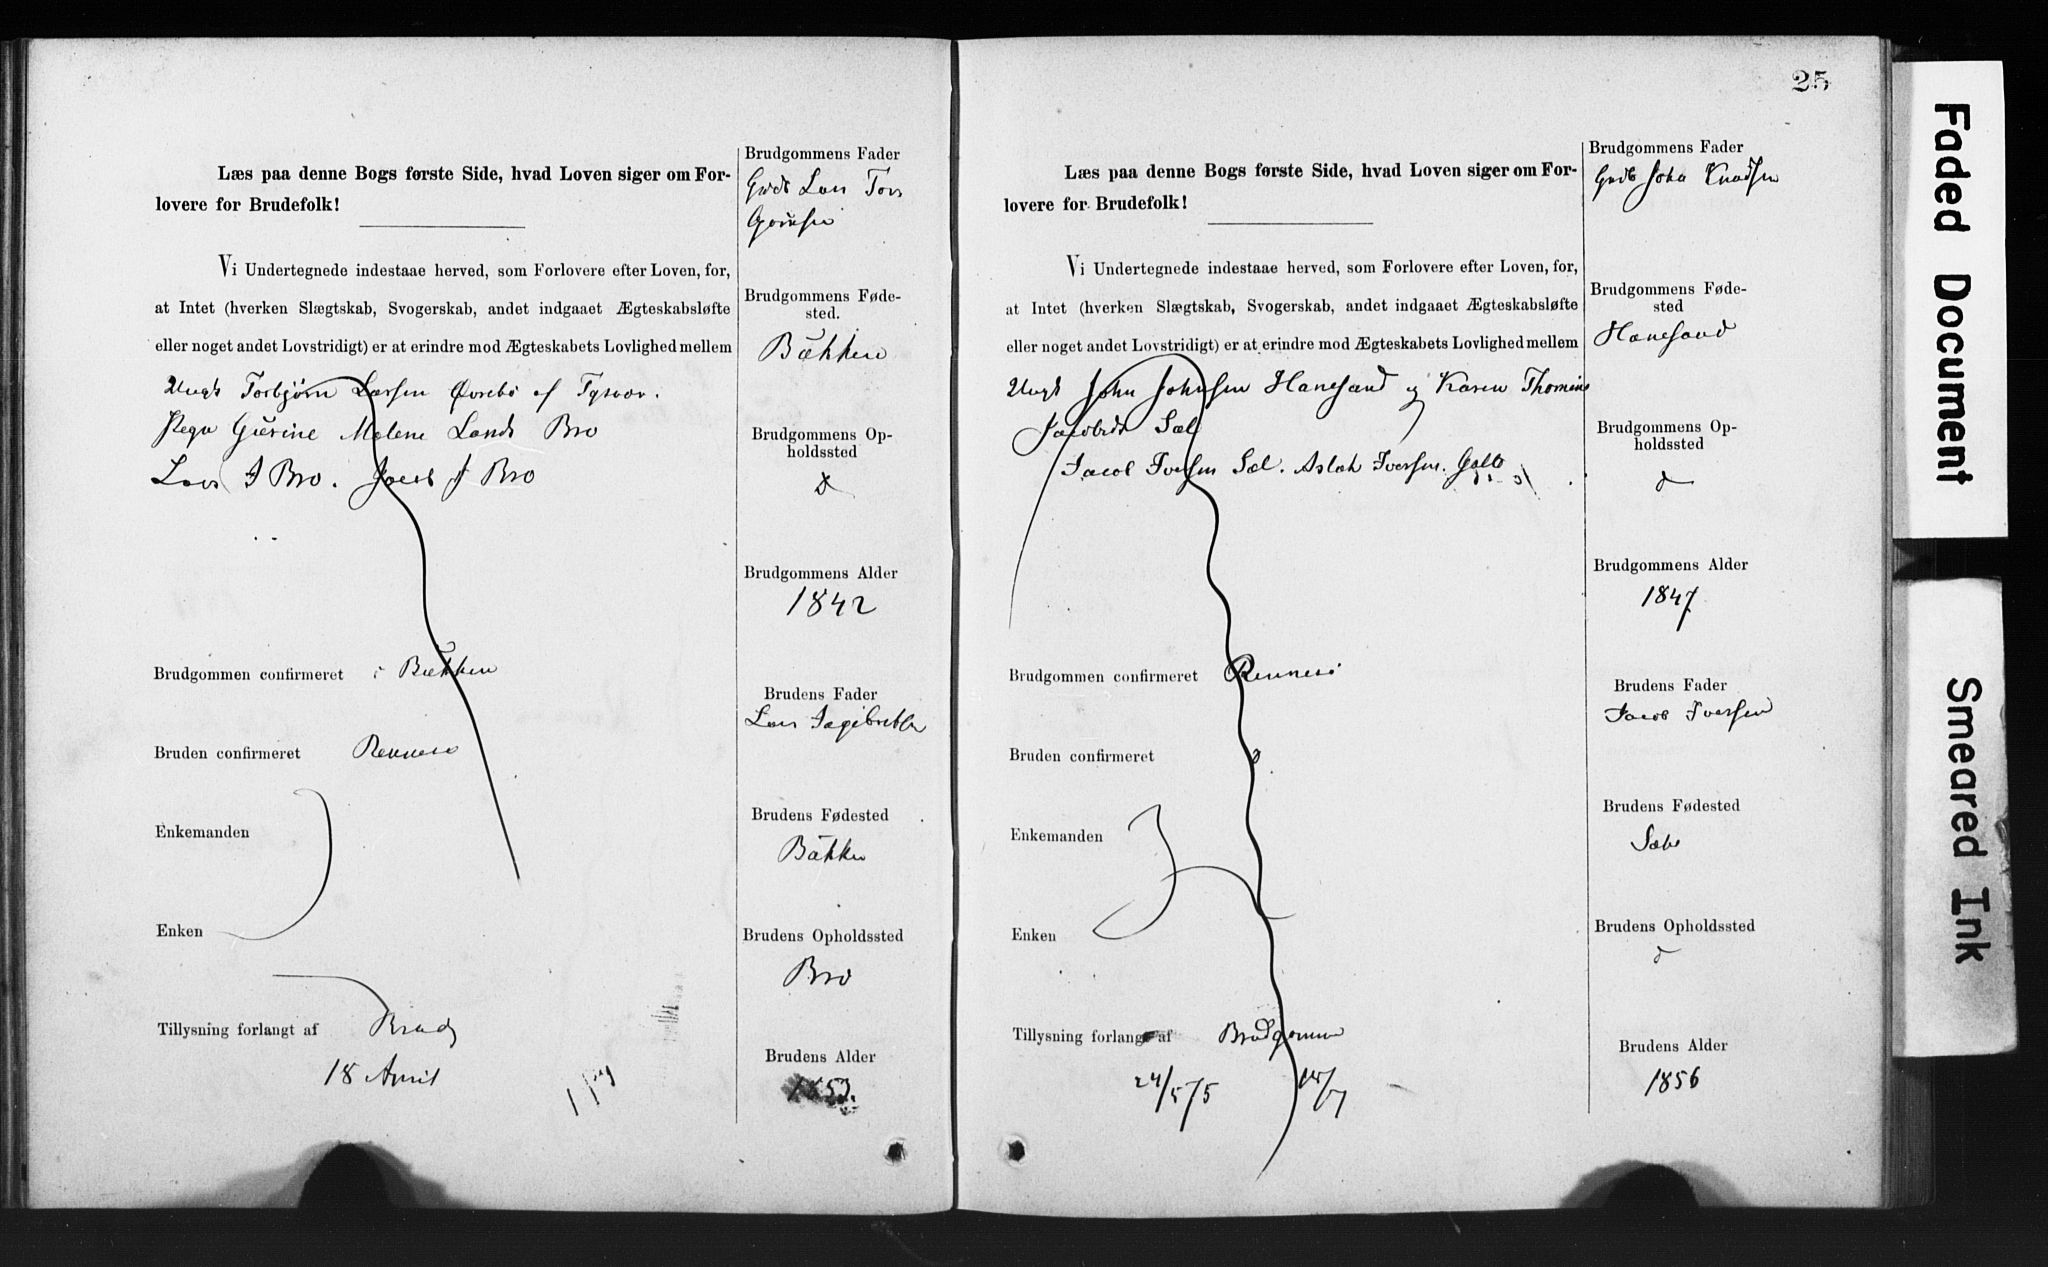 Læs paa denne Bogs første Side, hvad Loven siger om For-
lovere for Brudefolk!
Vi Undertegnede indestaae herved, som Forlovere efter Loven, for,
at Intet (hverken Slægtskab, Svogerskab, andet indgaaet Ægteskabsløfte
eller noget andet Lovstridigt) er at erindre mod Ægteskabets Lovlighed mellem
Ungk Torbjørn Larsen Øvrebø af Tysvær.
Pega Gurine Malene Lands Bro
Lars I Bro. Jacob J Bro
Brudgommen confirmeret i Bækken
Bruden confirmeret Rennesø
Enkemanden
Enken
Tillysning forlangt af Brud
18 April
Brudgommens Fader
Grds Lars Tor
Brudgommens Føde-
sted.
Bækken
Brudgommens Op-
holdssted
d
Brudgommens Alder
1842
Brudens Fader
Lars Ingebretsen
Brudens Fødested
Bækken
Brudens Opholdssted
Bro
Brudens Alder
1853.
25
Læs paa denne Bogs første Side, hvad Loven siger om For-
lovere for Brudefolk!
Vi Undertegnede indestaae herved, som Forlovere efter Loven, for,
at Intet (hverken Slægtskab, Svogerskab, andet indgaaet Ægteskabsløfte
eller noget andet Lovstridigt) er at erindre mod Ægteskabets Lovlighed mellem
Ungk John Johnsen Hanesand og Karen Thomine
Jacobsd Sæl
Jacob Iversen Sæl. Aslak Iversen. Galte
Brudgommen confirmeret Rennesø
Bruden confirmeret d
Enkemanden
Enken
Tillysning forlangt af Brudgomme
24/5 75
Brudgommens Fader
Grdb John Knudsen
Brudgommens Føde-
sted
Hanesand
Brudgommens Op-
holdssted
d
Brudgommens Alder
1847
Brudens Fader
Jacob Iversen
Brudens Fødested
Brudens Opholdssted
d
Brudens Alder
1856
Faded Document
Smeared Ink